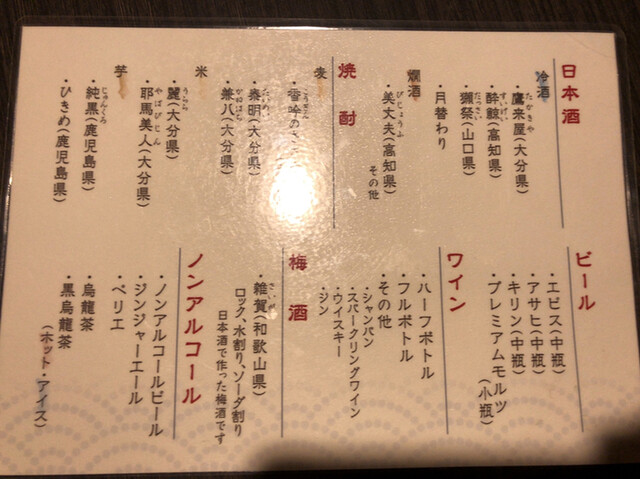 日本酒
冷酒
・鷹来屋(大分県)
たかきや
・酔鯨(高知県)
すいげい
・獺祭(山口県)
だっさい
・月替わり
燗酒
・美丈夫(高知県)
びじょうふ
その他
焼酎
麦
・雪吟のささ
・泰明(大分県)
たいめい
・兼八(大分県)
かねはち
米
・麗(大分県)
うらら
・耶馬美人(大分県)
やばびじん
芋
・純黒(鹿児島県)
じゅんくろ
・ひきめ(鹿児島県)
ビール
・エビス(中瓶)
・アサヒ(中瓶)
・キリン(中瓶)
・プレミアムモルツ
(小瓶)
ワイン
・ハーフボトル
・フルボトル
・その他
・シャンパン
・スパークリングワイン
・ウイスキー
・ジン
梅酒
・雑賀(和歌山県)
さいが
ロック、水割り、ソーダ割り
日本酒で作った梅酒です
ノンアルコール
・ノンアルコールビール
・ジンジャーエール
・ペリエ
・烏龍茶
・黒烏龍茶
(ホット・アイス)